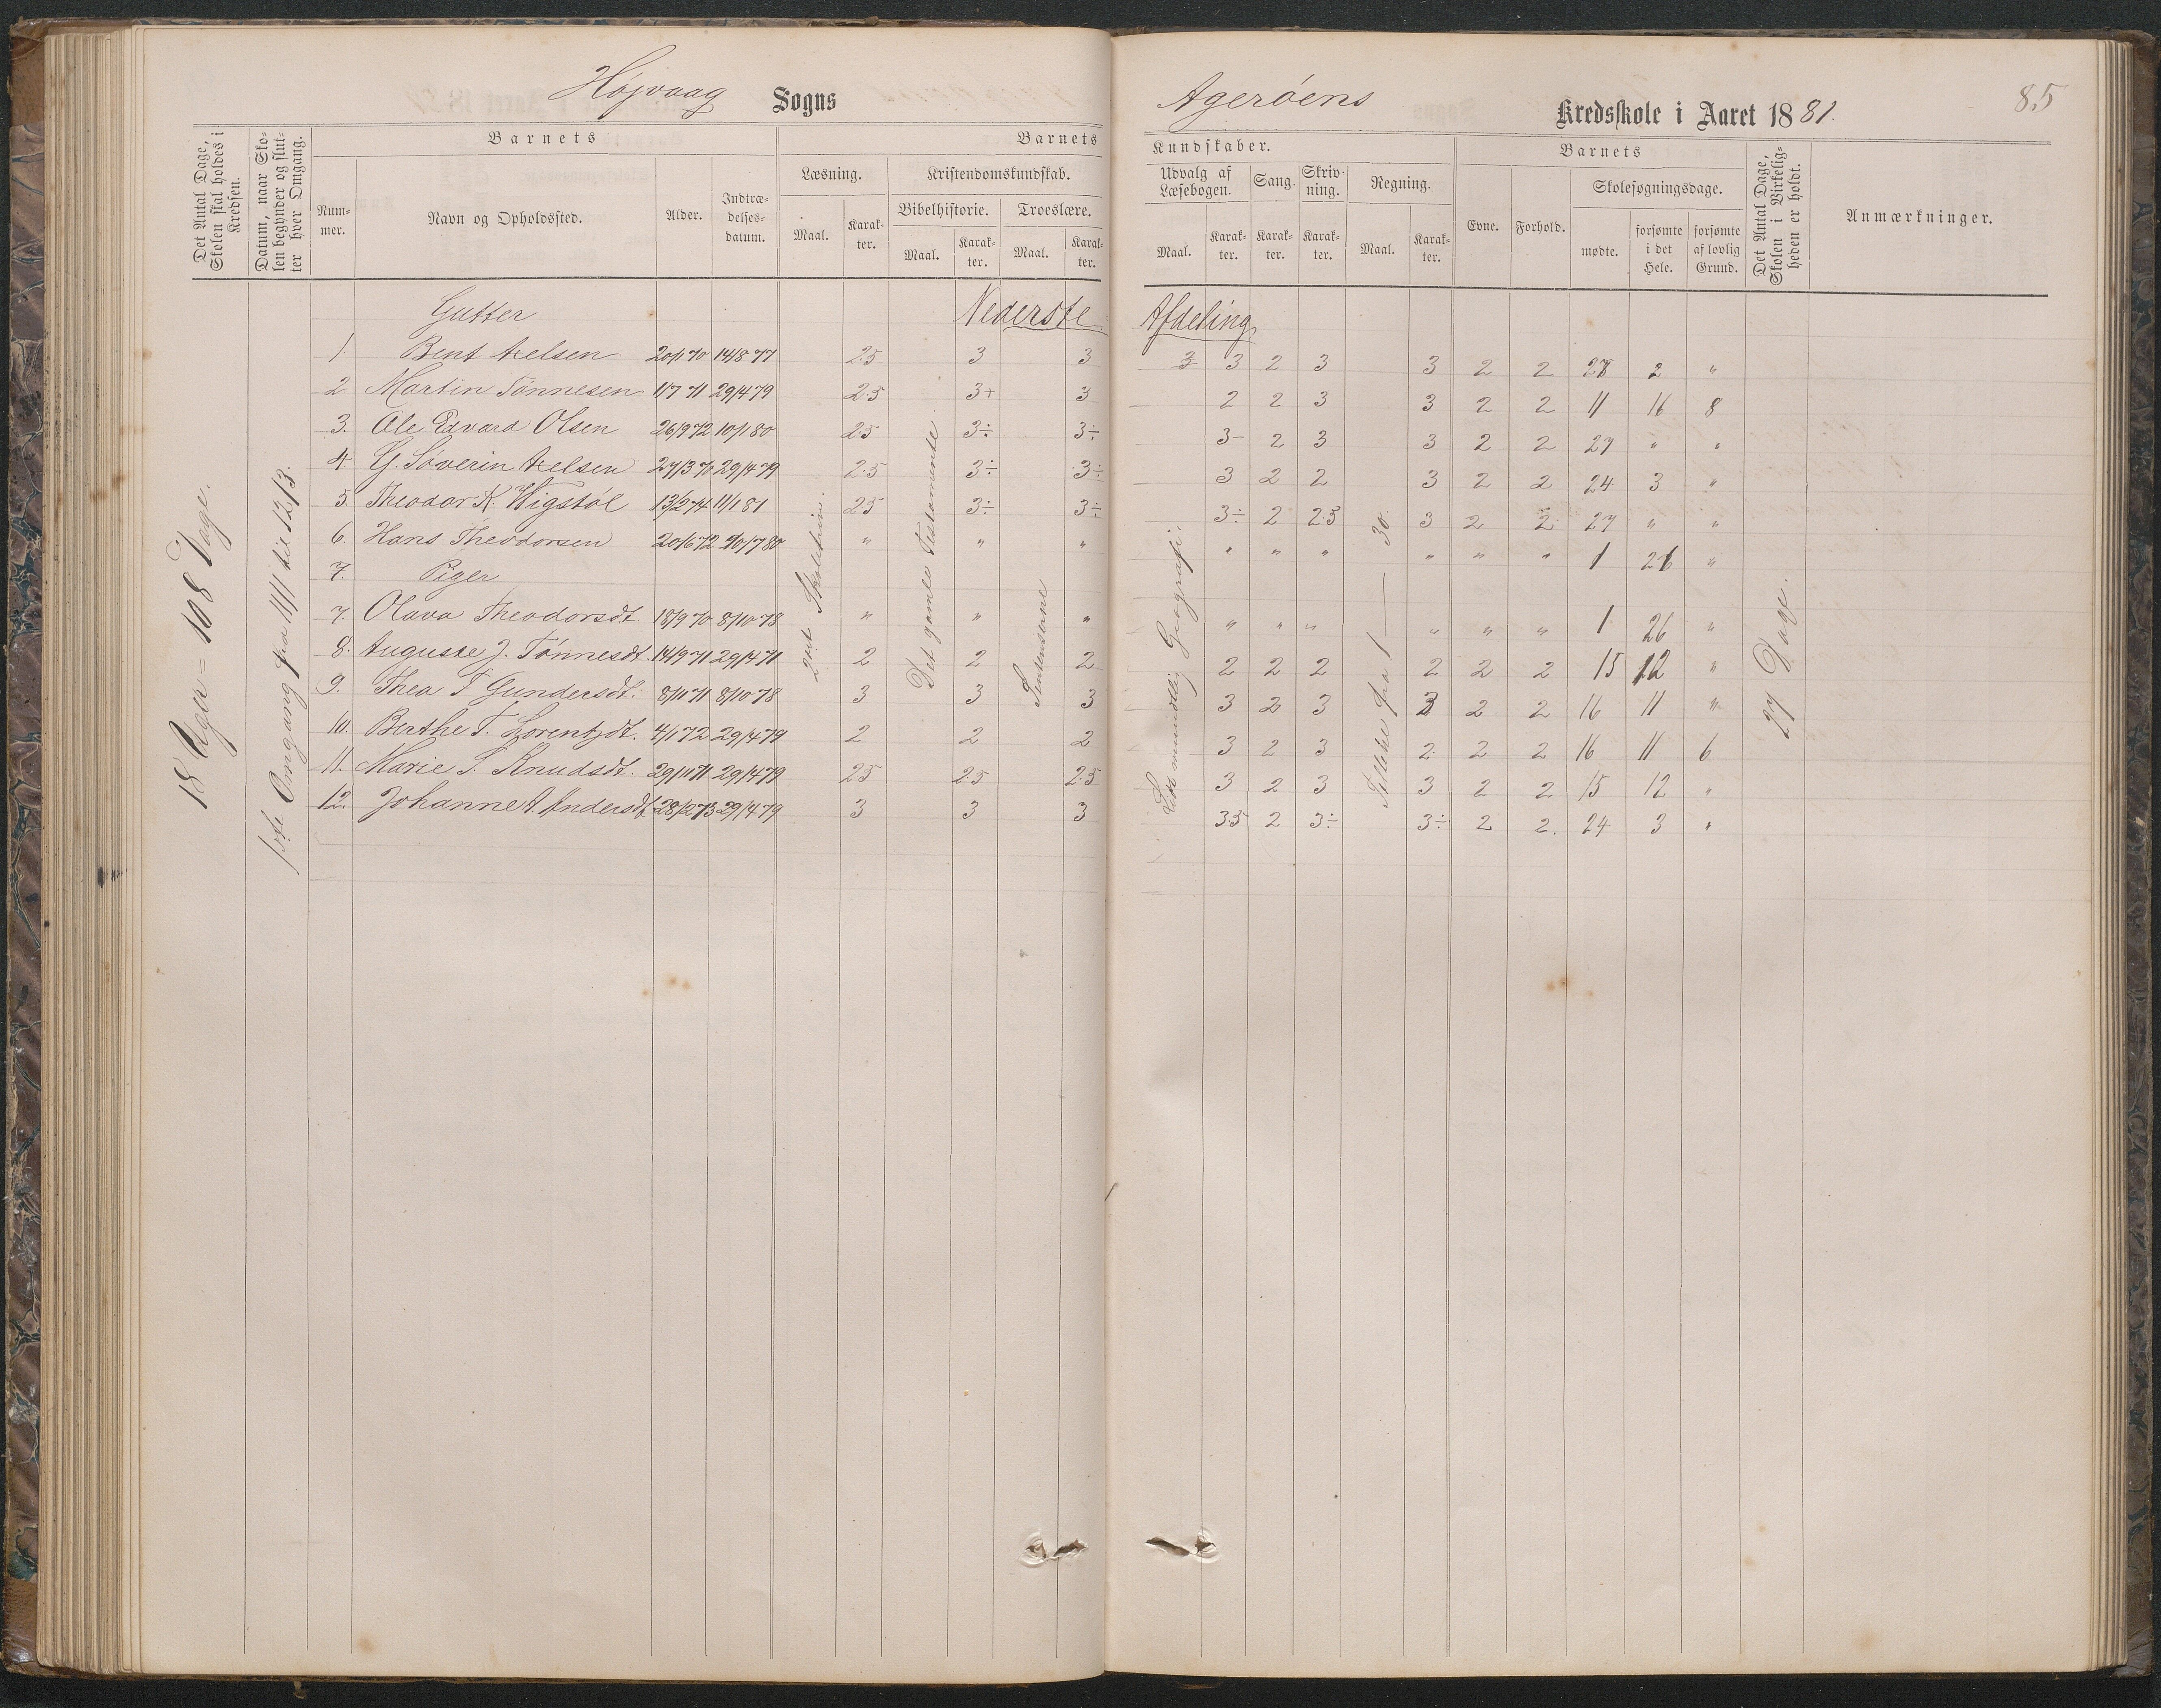 Højvaag Sogns
Agerøens Kredsskole i Aaret 1881. 85
Det Antal Dage, Skolen skal holdes i Kredsen.
Datum, naar Skolen begynder og slutter hver Omgang.
Barnets
Nummer.
Navn og Opholdssted.
Alder.
Indtrædelsesdatum.
Barnets
Læsning.
Maal.
Karakter.
Kristendomskundskab.
Bibelhistorie.
Maal.
Karakter.
Troeslære.
Maal.
Karakter.
Kundskaber.
Udvalg af Læsebogen.
Maal.
Karakter.
Sang.
Karakter.
Skrivning.
Karakter.
Regning.
Maal.
Karakter.
Barnets
Evne.
Forhold.
Skolesøgningsdage.
mødte.
forsømte i det Hele.
forsømte af lovlig Grund.
Det Antal Dage, Skolen i Virkeligheden er holdt.
Anmærkninger.
18 Uger = 108 Dage.
1ste Omgang fra 11/1 til 12/3.
Gutter Nederste Afdeling
1. Bent Axelsen 20/1 70 14/8 77 2.5 3 3 3 3 2 3 3 2 2 28 2 "
2 Martin Tønnesen 11/7 71 29/4 79 2.5 3+ 3 2 2 3 3 2 2 11 16 8
3. Ole Edvard Olsen 26/9 72 10/1 80 2.5 3÷ 3÷ 3- 2 3 3 2 2 27 " "
4 G. Søverin Axelsen 27/3 70 29/4 79 2.5 3÷ 3÷ 3 2 2 3 2 2 24 3 "
5. Theodor K. Vigstøl 13/2 74 11/1 81 2.5 3÷ 3÷ 3÷ 2 2.5 3 2 2 27 " "
6. Hans Theodorsen 20/6 72 20/7 80 " " " " " " " " " 1 26 "
7. Piger
7. Olava Theodorsdt. 18/9 70 8/10 78 " " " " " " " " " 1 26 "
8. Auguste J. Tønnesdt. 14/9 71 29/4 71 2 2 2 2 2 2 2 2 2 15 12 "
9. Thea T Gundersdt. 8/11 71 8/10 78 3 3 3 3 2 3 3 2 2 16 11 "
10. Berthe T. Lorentzdt. 4/1 72 29/4 79 2 2 2 3 2 3 2 2 2 16 11 6
11. Marie S. Knudsdt. 29/11 71 29/4 79 2.5 2.5 2.5 3 2 3 3 2 2 15 12 "
12. Johanne A. Andersdt 28/2 73 29/4 79 3 3 3 3.5 2 3÷ 3÷ 2 2. 24 3 "
2det Skoletrin.
Det gamle Testamente.
Sentenserne
Lidt mundtlig Geografi.
Tælle fra 1 — 30.
27 Dage.